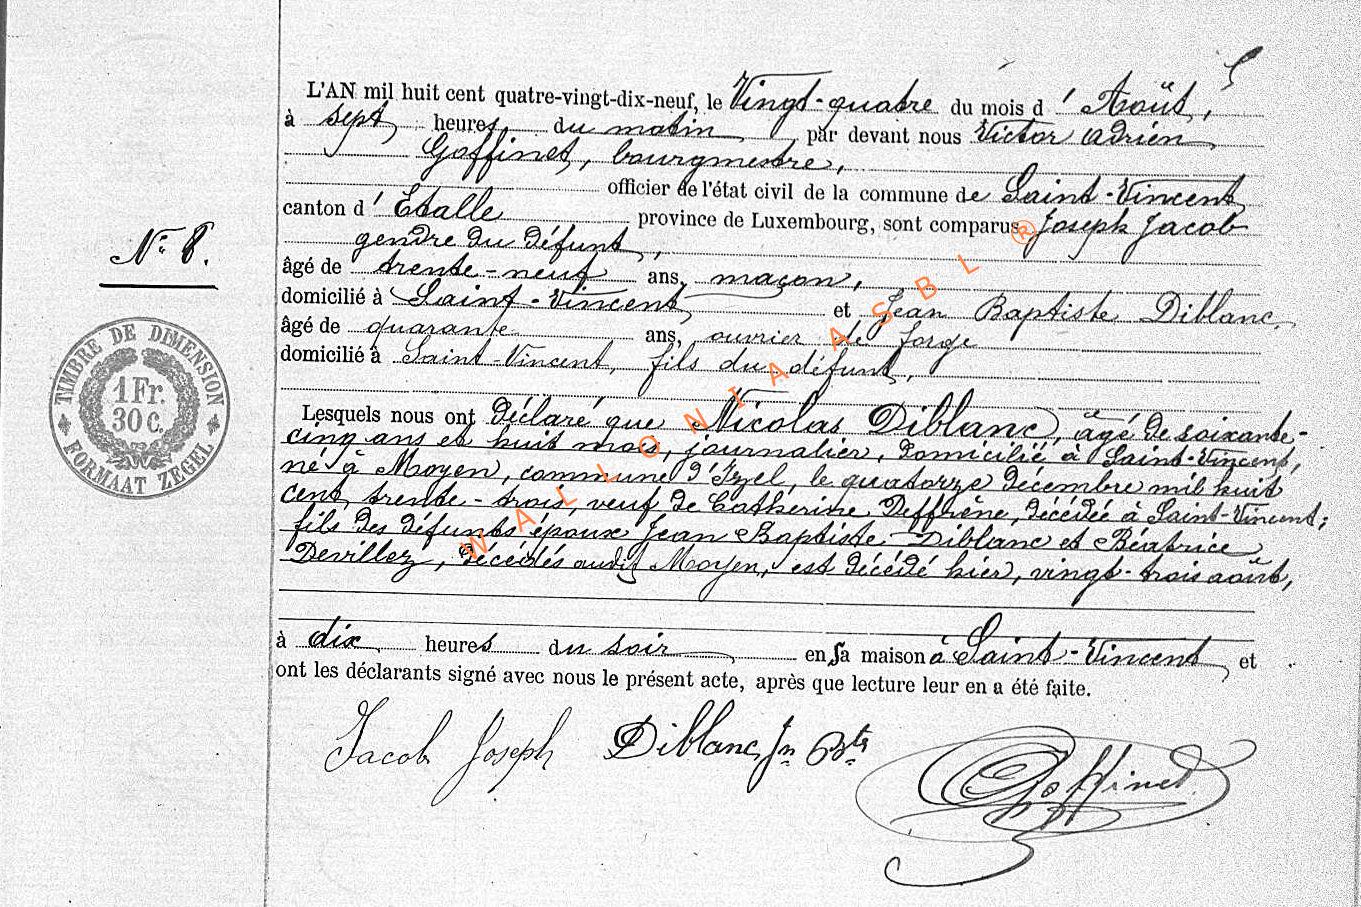 L'AN mil huit cent quatre-vingt-dix-neuf, le Vingt-quatre du mois d' Août,
à sept heures, du matin, par devant nous Victor Adrien
Goffinet, bourgmestre,
officier de l'état civil de la commune de Saint-Vincent
canton d' Etalle province de Luxembourg, sont comparus Joseph Jacob
gendre du défunt,
N° 8.
âgé de trente-neuf ans, maçon,
domicilié à Saint-Vincent, et Jean Baptiste Diblanc,
âgé de quarante ans, ouvrier de forge
domicilié à Saint-Vincent, fils du défunt,
TIMBRE DE DIMENSION
1 Fr.
30 c.
FORMAAT ZEGEL
Lesquels nous ont déclaré que Nicolas Diblanc, âgé de soixante-
cinq ans et huit mois, journalier, domicilié à Saint-Vincent,
né à Moyen, commune d'Izel, le quatorze décembre mil huit
cent trente-trois, veuf de Catherine Deffrène, décédée à Saint-Vincent;
fils des défunts époux Jean Baptiste Diblanc et Béatrice
Devillez, décédés audit Moyen, est décédé hier, vingt-trois août,
à dix heures du soir, en sa maison à Saint-Vincent, et
ont les déclarants signé avec nous le présent acte, après que lecture leur en a été faite.
Jacob Joseph Diblanc Jn Bte Goffinet
WALLONIA ASBL ®